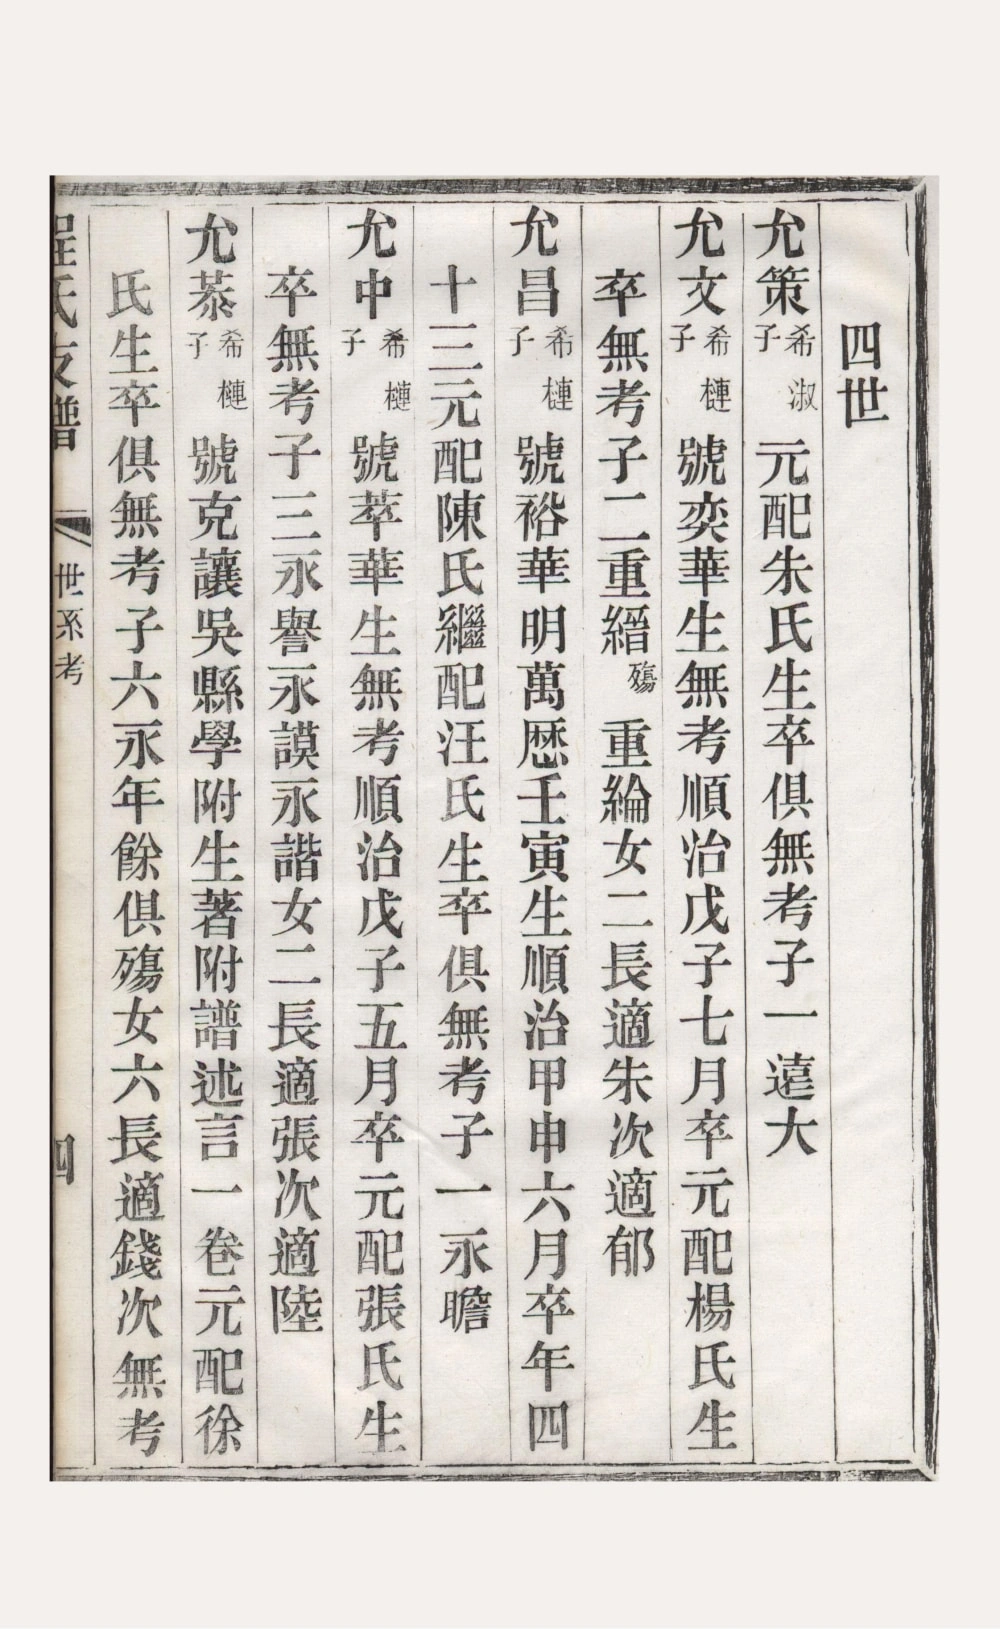 四世
允策希淑子元配朱氏生卒俱無考子一遠大
允文希槤子號奕華生無考順治戊子七月卒元配楊氏生
卒無考子二重縉殤重綸女二長適朱次適郁
允昌希槤子號裕華明萬歷壬寅生順治甲申六月卒年四
十三元配陳氏繼配汪氏生卒俱無考子一永瞻
允中希槤子號萃華生無考順治戊子五月卒元配張氏生
卒無考子三永譽永謨永諧女二長適張次適陸
允恭希槤子號克讓吳縣學附生著附譜述言一卷元配徐
氏生卒俱無考子六永年餘俱殤女六長適錢次無考
程氏支譜 世系考 四